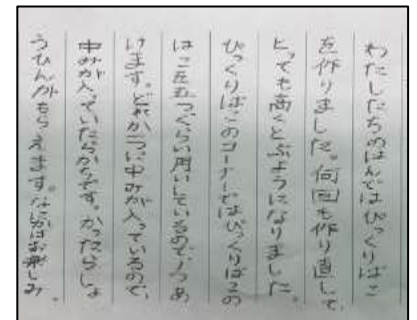 わたしたちのはんではびっくりばこ
を作りました。何回も作り直して、
とっても高くとぶようになりました。
びっくりばこのコーナーではびっくりばこの
はこを五つぐらい用いしているので、1つあ
けます。どれか一つに中みが入っているので、
中みが入っていたらかちです。かったらしょ
うひんがもらえます。なにかはお楽しみ。